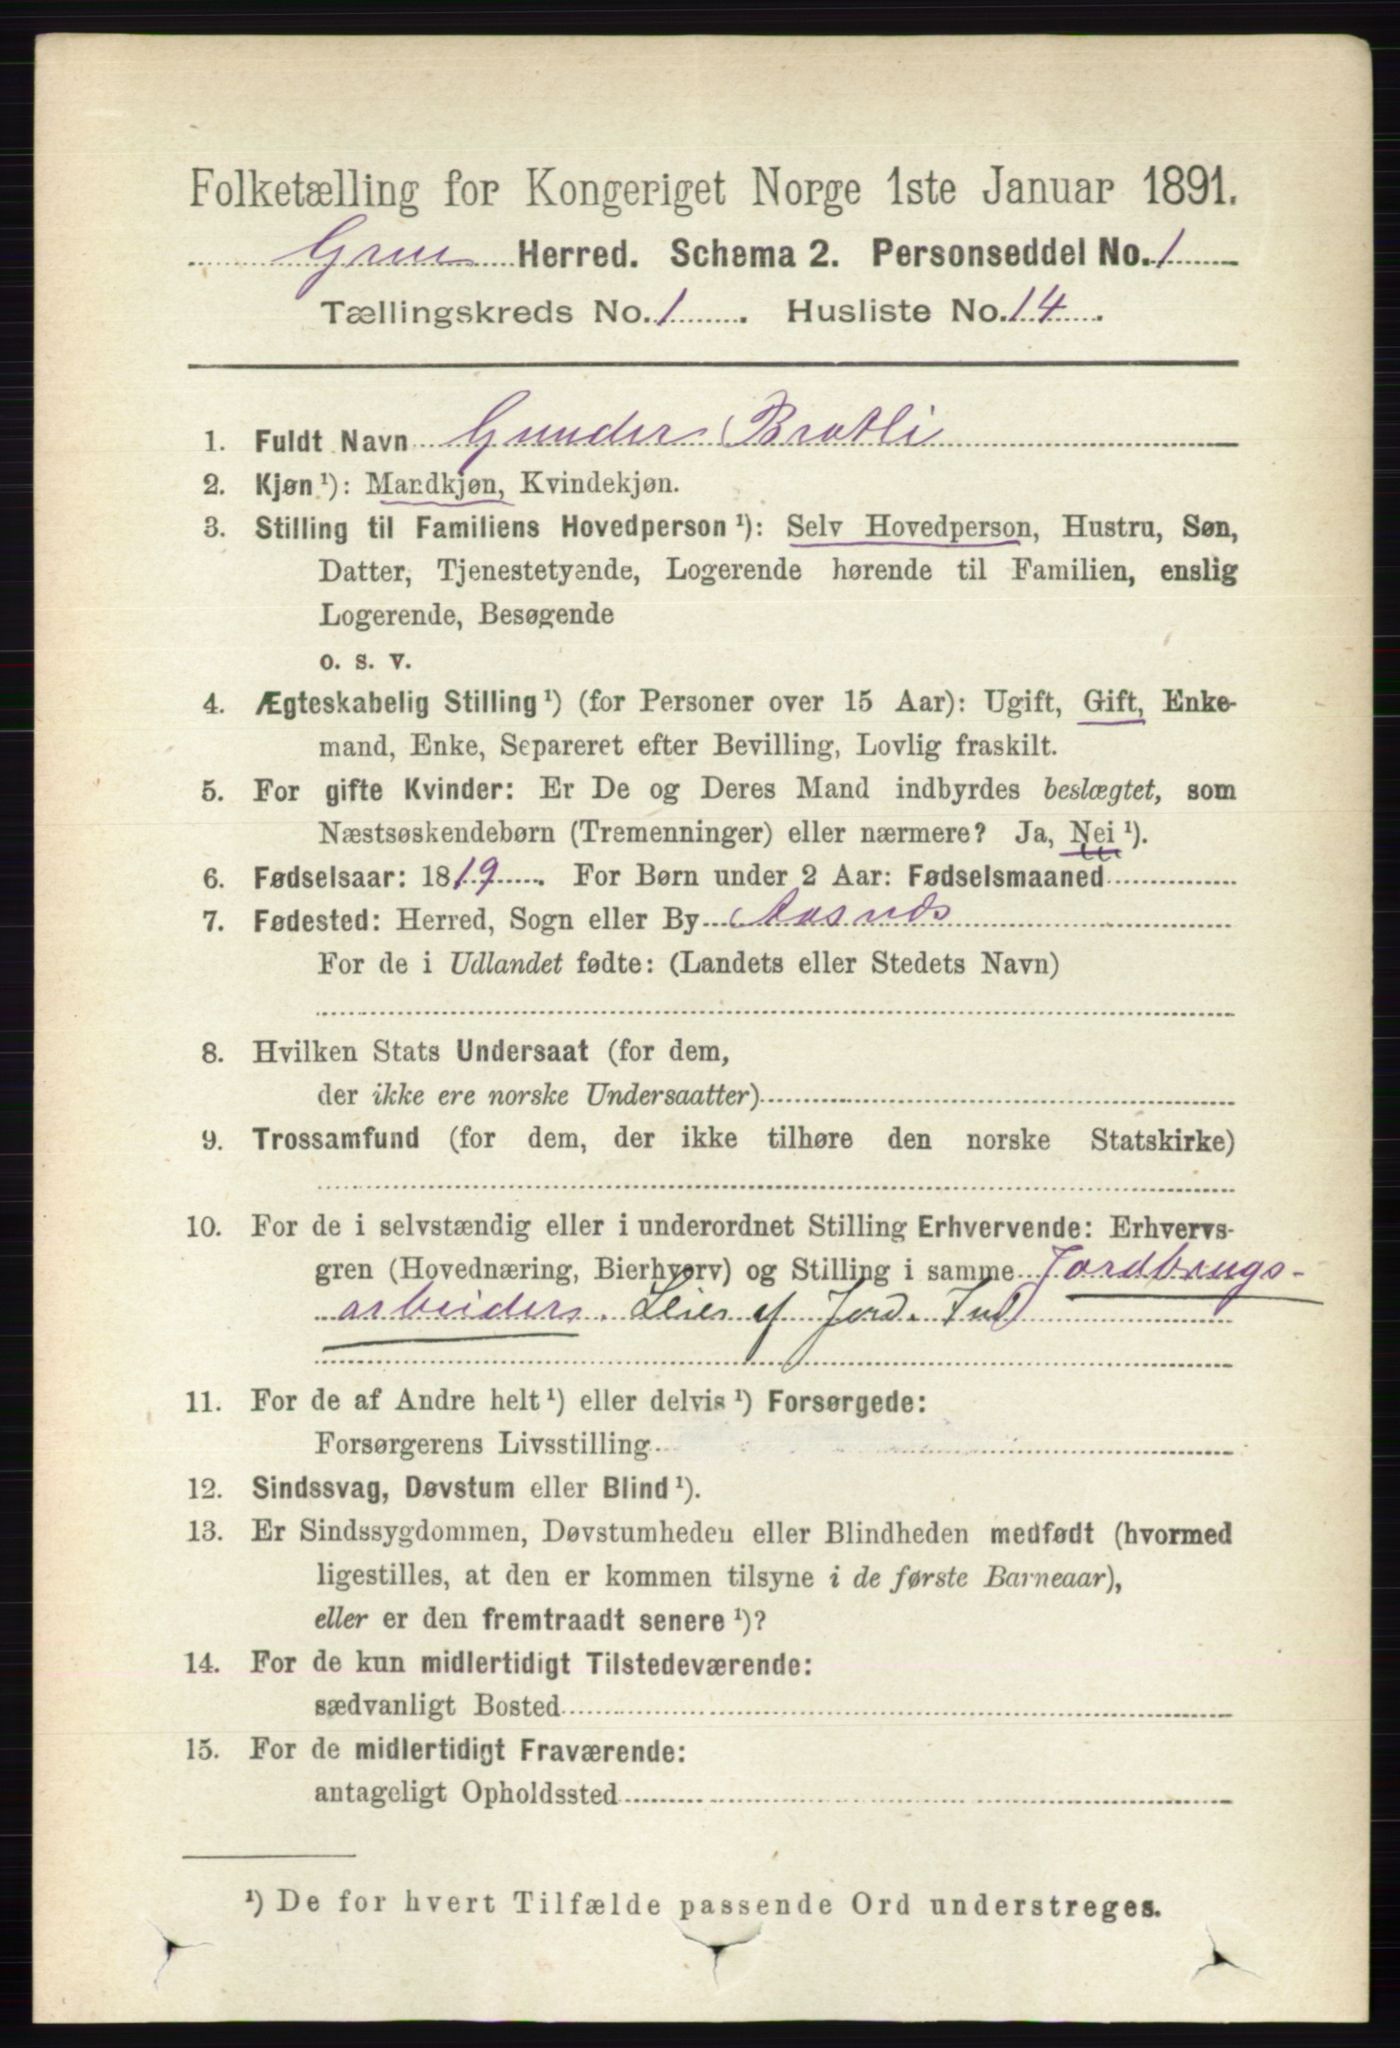 Folketælling for Kongeriget Norge 1ste Januar 1891.
Grue Herred. Schema 2. Personseddel No. 1
Tællingskreds No. 1. Husliste No. 14.
1. Fuldt Navn Gunder Bratli
2. Kjøn ¹): Mandkjøn, Kvindekjøn.
3. Stilling til Familiens Hovedperson ¹): Selv Hovedperson, Hustru, Søn,
Datter, Tjenestetyende, Logerende hørende til Familien, enslig
Logerende, Besøgende
o. s. v.
4. Ægteskabelig Stilling ¹) (for Personer over 15 Aar): Ugift, Gift, Enke-
mand, Enke, Separeret efter Bevilling, Lovlig fraskilt.
5. For gifte Kvinder: Er De og Deres Mand indbyrdes beslægtet, som
Næstsøskendebørn (Tremenninger) eller nærmere? Ja, Nei ¹).
6. Fødselsaar: 1819. For Børn under 2 Aar: Fødselsmaaned
7. Fødested: Herred, Sogn eller By Aasnes
For de i Udlandet fødte: (Landets eller Stedets Navn)
8. Hvilken Stats Undersaat (for dem,
der ikke ere norske Undersaatter)
9. Trossamfund (for dem, der ikke tilhøre den norske Statskirke)
10. For de i selvstændig eller i underordnet Stilling Erhvervende: Erhvervs-
gren (Hovednæring, Bierhverv) og Stilling i samme Jordbrugs-
arbeider. Leier af Jord.
11. For de af Andre helt ¹) eller delvis ¹) Forsørgede:
Forsørgerens Livsstilling
12. Sindssvag, Døvstum eller Blind ¹).
13. Er Sindssygdommen, Døvstumheden eller Blindheden medfødt (hvormed
ligestilles, at den er kommen tilsyne i de første Barneaar),
eller er den fremtraadt senere ¹)?
14. For de kun midlertidigt Tilstedeværende:
sædvanligt Bosted
15. For de midlertidigt Fraværende:
antageligt Opholdssted
¹) De for hvert Tilfælde passende Ord understreges.